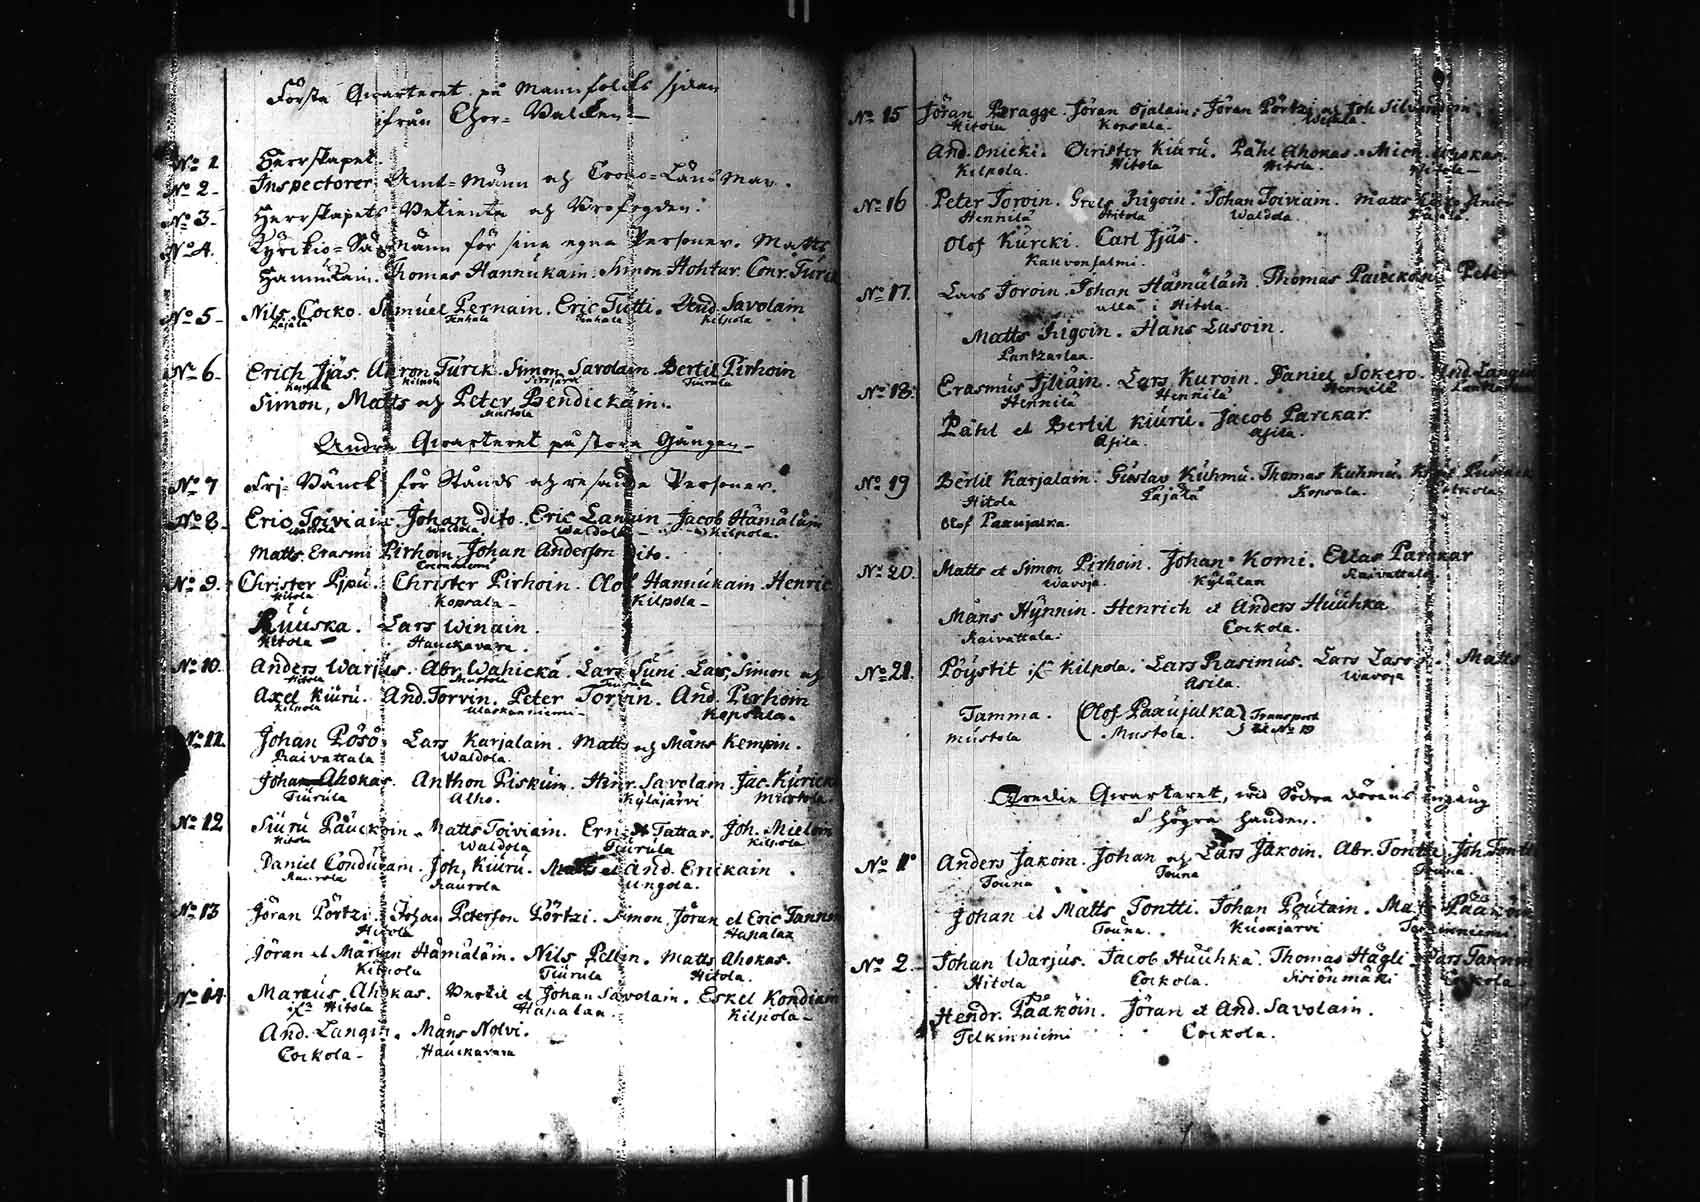 Första Qwarteret på Mannfolcks sijdan
ifrån Chor-
No 1. Herrskapet.
No 2. Inspectorer, Amt-Männ och Crono-Länsman.
No 3. Herrskapets Betienta och
No 4. Kyrkio- Männ för sine egna Personer. Matts
Hannukain. Thomas Hannukain. Simon Hohtar. Conr. Türck
No 5. Nils Cocko. Samuel Pernain. Eric Tutti. And. Savolain
Pajala Tenhola Tenhola Kilpola
No 6. Erich Jjäs. Aaron Türck. Simon Savolain. Bertil Pirhoin
Kopsala Kilpola Tiurula
Simon, Matts och Peter Bendickain.
Mustola
Andra Qwarteret på stora Gången
No 7 Frj-Bänck för Stånds och resande Personer.
No 8. Eric Toiviain Johan dito. Eric Lanuin Jacob Hämäläin
Waldola Waldola Waldola Kilpola.
Matts Erasmi Pirhoin. Johan Anderson dito.
No 9. Christer Pjpu. Christer Pirhoin. Olof Hannukain. Henric
Hitola Kopsala Kilpola
Ruuska. Lars Winain.
Hitola Hauckavara.
No 10. Anders Warjus. Abr. Wahicka. Lars Suni. Lars, Simon och
Hitola Mustola
Axel Kiuru. And. Torvin. Peter Torvin. And. Pirhoin
Kilpola Kopsala.
No 11. Johan Pösö. Lars Karjalain. Matts och Måns Kempin.
Raivattala Waldola.
Johan Ahokas. Anthon Piskuin. Henr. Savolain. Jac. Kürick
Tiurula Alho. Kyläjärvi Mustola.
No 12 Siuru Päuckoin. Matts Toiviain. Ern. Tattar. Joh. Mieloin
Hitola Waldola Tiurula Kilpola
Daniel Condurain. Joh. Kiuru. Matts et And. Erickain
Raurola Raurola Ungola.
No 13 Jöran Pörtzi. Johan Peterson Pörtzi. Simon, Jöran et Eric Tannin
Hitola Hapalax
Jöran et Mårten Hämäläin. Nils Pellin. Matts Ahokas.
Kilpola Tiurula Hitola.
No 14. Marcus Ahokas. Bertil et Johan Savolain. Eskel Kondiain
Hitola Hapalax. Kilpola
And. Languin. Måns Nolvi.
Cockola Hauckavara
No 15 Jöran Pæragge. Jöran Ojalain. Jöran Pörtzi och Joh. Silvendoin
Hitola Kopsala. Hitola.
And. Onicki. Christer Kiuru. Påhl Ahokas. Mich. Ahokas.
Kilpola. Hitola Hitola. Hitola
No 16 Peter Toroin. Grels Higoin. Johan Toiviain. Matts
Hennilä Hitola Waldola
Olof Kürcki. Carl Jjäs.
Kauvonsalmi.
No 17. Lars Toroin. Johan Hämäläin. Thomas Pauckoin. Peter
alla i Hitola
Matts Higoin. Hans Lusoin.
No 18. Erasmus Ijliäin. Lars Kuroin. Daniel Sokero. And. Languin
Hennilä Hennilä Hennilä
Påhl et Bertil Kiuru. Jacob Parckar.
Asila. Asila.
No 19 Bertil Karjalain. Gustav Kuhmu. Thomas Kuhmu.
Hitola Pajala Kopsala.
Olof Paxujalka.
No 20. Matts et Simon Pirhoin. Johan Komi. Ellas Parckar
Wavoja Kylälax Raivattala
Måns Hynnin. Henrich et Anders Huuhka
Raivattala. Cockola.
No 21. Pöystit Kilpola. Lars Rasimus. Lars Laso Matts
Asila. Wavoja
Tamma. (Olof Paxujalka) Transport
Mustola Mustola. til No 19
Tredie Qwarteret, wid Södra dörens ingång
å högra handen.
No 1. Anders Jakoin. Johan och Lars Jakoin. Abr. Tontti. Joh. Tontti
Touna Touna Touna.
Johan et Matts Tontti. Johan Poutain. Pääköin
Touna. Kuoxjärvi
No 2. Johan Warjus. Jacob Huuhka. Thomas Hägli. Lars Tannin
Hitola Cockola. Sisiönmäki Cockola.
Hendr. Pääköin. Jöran et And. Savolain.
Telkinniemi Cockola.